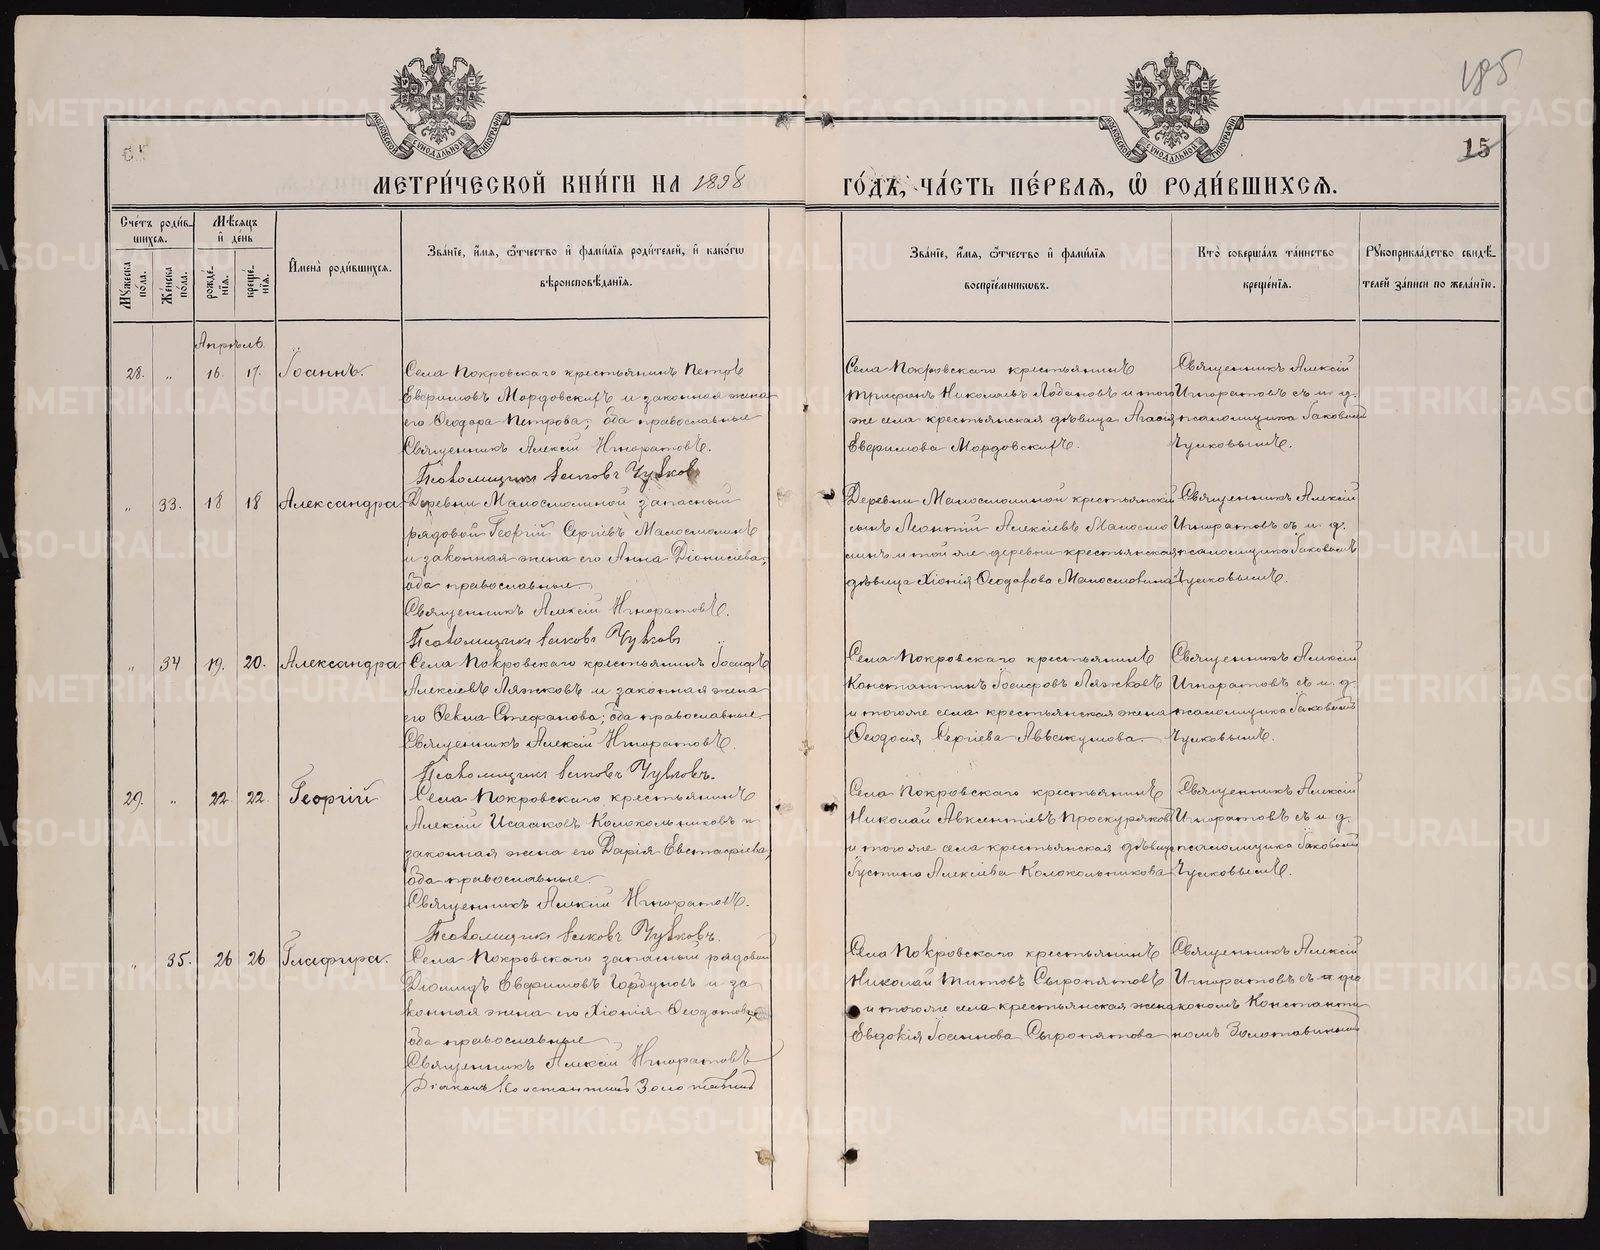 185
15
МЕТРИ́ЧЕСКОЙ КНИ́ГИ НА 1898
ГО́ДЪ, ЧА́СТЬ ПЕ́РВАЯ, Ѿ РОДИ́ВШИХСЯ.
Сче́тъ роди́вшихся.
Мѣ́сяцъ и҆ де́нь
Мꙋ́жеска по́ла.
Же́нска по́ла.
рожде́нїѧ.
креще́нїѧ.
И҆мена̀ роди́вшихся.
Зва́нїе, и҆́мя, ѻ҆́тчество и҆ фами́лїя роди́телей, и҆ како́гѡ
вѣроисповѣ́данїя.
Зва́нїе, и҆́мя, ѻ҆́тчество и҆ фами́лїя
воспрїе́мникѡвъ.
Кто̀ соверша́лъ та́инство
креще́нїя.
Рꙋкоприкла́дство свидѣ́-
телей за́писи по жела́нїю.
Апрѣль
28. „ 16. 17. Іоаннъ.
Села Покровскаго крестьянинъ Петръ
Евфимовъ Мордовскихъ и законная жена
его Ѳеодора Петрова; оба православные
Священникъ Алексій Игноратовъ.
Псаломщикъ Іаковъ Чулковъ
Села Покровскаго крестьянинъ
Трифонъ Николаевъ Лобановъ и того
же села крестьянская дѣвица Агафія
Евфимова Мордовскихъ.
Священникъ Алексій
Игноратовъ съ и. д.
псаломщика Іаковомъ
Чулковымъ.
„ 33. 18 18 Александра
Деревни Малосмолиной запасный
рядовой Георгій Сергіевъ Малосмолинъ
и законная жена его Анна Діонисіева;
оба православные
Священникъ Алексій Игноратовъ.
Псаломщикъ Іаковъ Чулковъ
Деревни Малосмолиной крестьянскій
сынъ Леонтій Алексіевъ Малосмо
линъ и той же деревни крестьянская
дѣвица Хіонія Ѳеодорова Малосмолина
Священникъ Алексій
Игноратовъ съ и. д.
псаломщика Іаковомъ
Чулковымъ.
„ 34 19. 20. Александра
Села Покровскаго крестьянинъ Іосифъ
Алексіевъ Ляжковъ и законная жена
его Ѳекла Стефанова; оба православные.
Священникъ Алексій Игноратовъ.
Псаломщикъ Іаковъ Чулковъ.
Села Покровскаго крестьянинъ
Константинъ Іосифовъ Ляжковъ
и того же села крестьянская жена
Ѳеодосія Сергіева Аввакумова
Священникъ Алексій
Игноратовъ съ и. д.
псаломщика Іаковомъ
Чулковымъ.
29. „ 22 22 Георгій
Села Покровскаго, крестьянинъ
Алексій Исааковъ Колокольниковъ и
законная жена его Дарія Евстафіева,
оба православные.
Священникъ Алексій Игноратовъ.
Псаломщикъ Іаковъ Чулковъ.
Села Покровскаго крестьянинъ
Николай Авксентіевъ Проскуряковъ
и того же села крестьянская дѣвица
Іустина Алексіева Колокольникова
Священникъ Алексій
Игноратовъ съ и. д.
псаломщика Іаковомъ
Чулковымъ.
„ 35. 26 26 Глафира.
Села Покровскаго запасный рядовой
Діомидъ Евфимовъ Горбуновъ и за
конная жена его Хіонія Ѳеодотова,
оба православные
Священникъ Алексій Игноратовъ
Діаконъ Константинъ Золотавинъ
Села Покровскаго крестьянинъ
Николай Титовъ Сыропятовъ
и того же села крестьянская жена
Евдокія Іоаннова Сыропятова
Священникъ Алексій
Игноратовъ съ діа
кономъ Константи
номъ Золотавинымъ